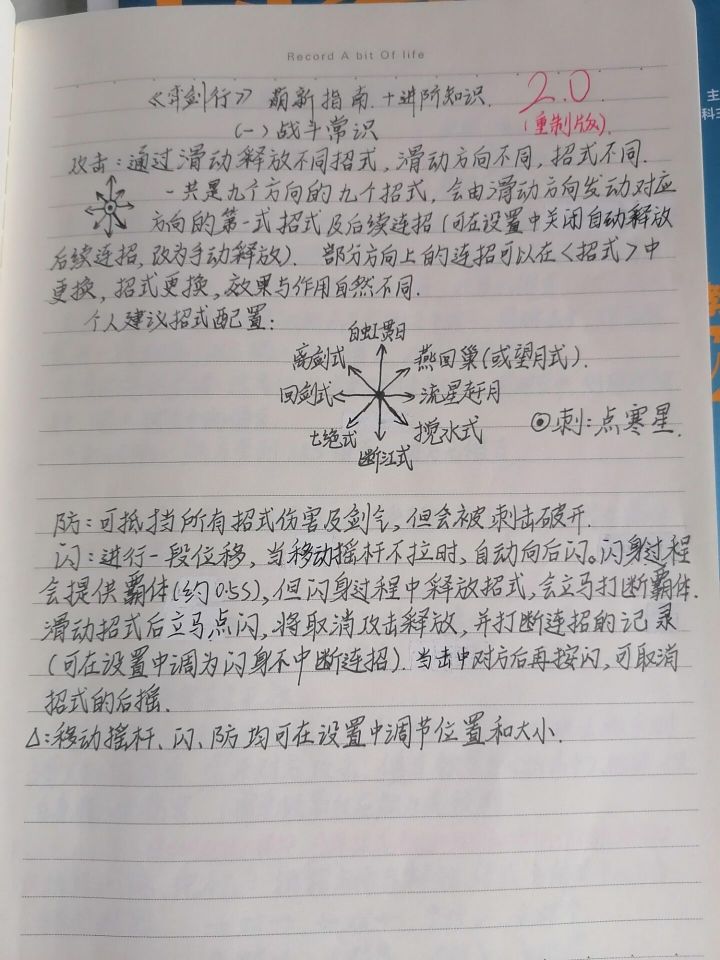 Record A bit Of life
《弈剑行》萌新指南.+进阶知识. 2.0
(一)战斗常识 (重制版).
攻击:通过滑动释放不同招式,滑动方向不同,招式不同.
一共是九个方向的九个招式,会由滑动方向发动对应
方向的第一式招式及后续连招(可在设置中关闭自动释放
后续连招,改为手动释放). 部分方向上的连招可以在<招式>中
更换,招式更换,效果与作用自然不同.
个人建议招式配置:
白虹贯日
离剑式 燕回巢(或望月式).
回剑式 流星赶月
七绝式 搅水式 ⊙刺:点寒星.
断江式
防:可抵挡所有招式伤害及剑气,但会被刺击破开.
闪:进行一段位移,当移动摇杆不拉时,自动向后闪。闪身过程
会提供霸体(约0.5S),但闪身过程中释放招式,会立马打断霸体.
滑动招式后立马点闪,将取消攻击释放,并打断连招的记录
(可在设置中调为闪身不中断连招).当击中对方后再按闪,可取消
招式的后摇.
△:移动摇杆、闪、防均可在设置中调节位置和大小.
主
科主